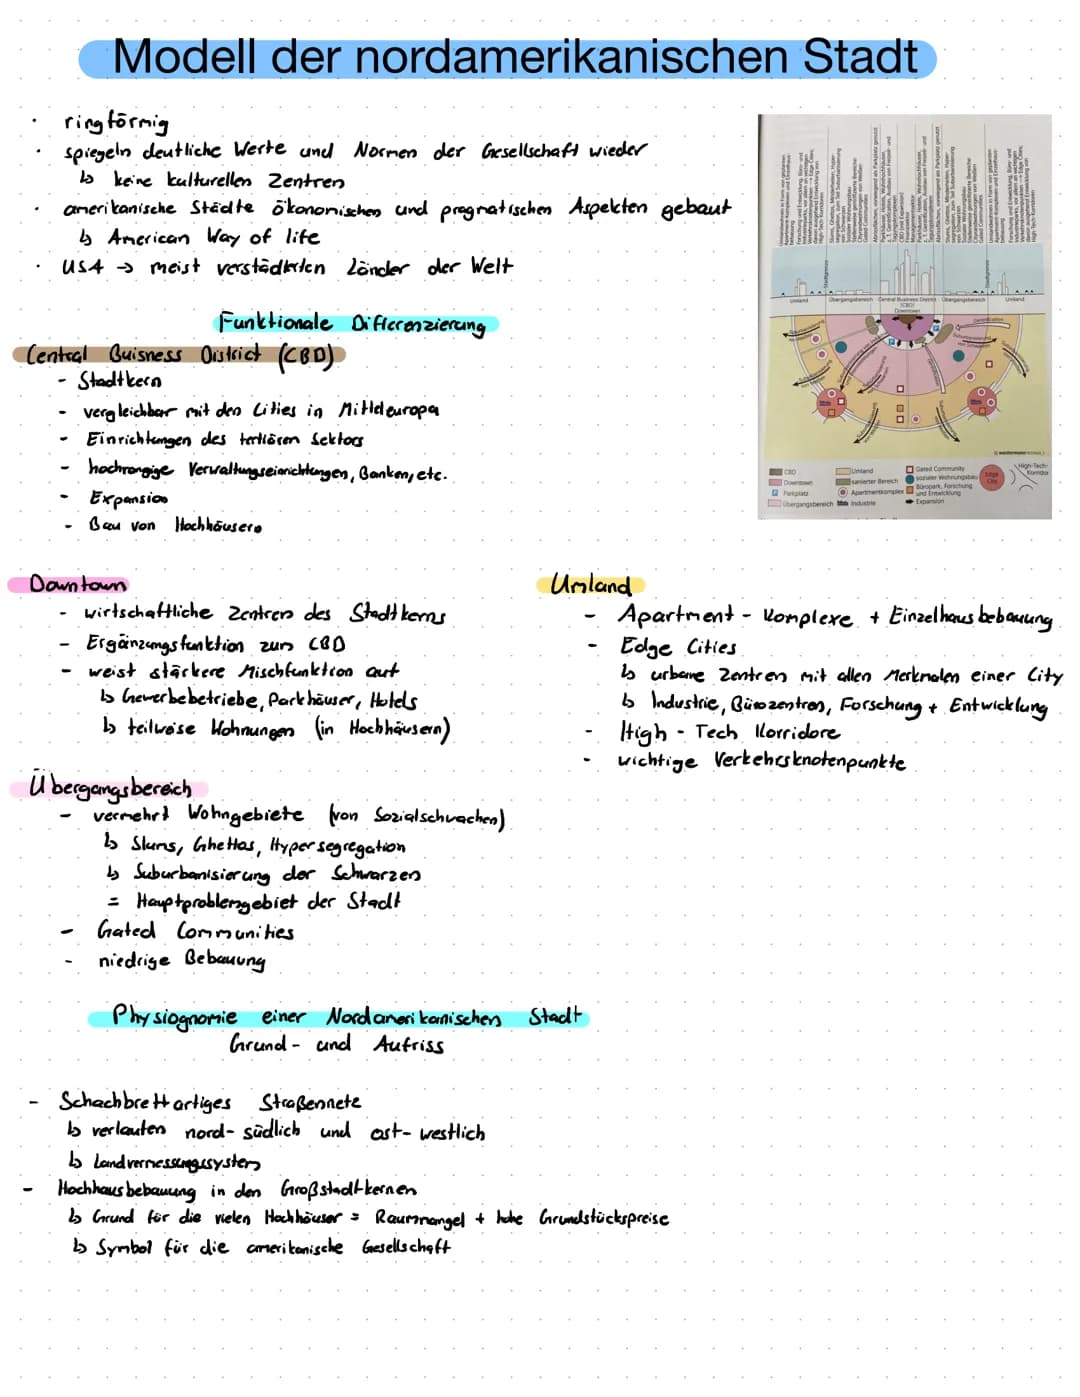 Modell der nordamerikanischen Stadt
ringförmig
spiegeln deutliche Werte und Normen der Gesellschaft wieder
↳ keine kulturellen Zentren
amerikanische Städte ökonomischen und pragmatischen Aspekten gebaut
↳ American Way of life
USA → meist verstädterten Länder der Welt
Funktionale Differenzierung
Central Buisness District (CBD)
- Stadtkern
- vergleichbar mit den Cities in Mitteleuropa
- Einrichtungen des tertiären Sektors
- hochrangige Verwaltungseinrichtungen, Banken, etc.
- Expansion
- Bau von Hochhäusern
Umland
Übergangsbereich
Central Business District
(CBD)
Downtown
Übergangsbereich
Umland
CBD
Downtown
P Parkplatz
Übergangsbereich
Umland
sanierter Bereich
Apartmentkomplex
Industrie
Gated Community
sozialer Wohnungsbau
Büropark, Forschung
und Entwicklung
Expansion
Edge
City
High-Tech-
Korridor
Downtown
- wirtschaftliche Zentren des Stadtkerns
- Ergänzungsfunktion zum CBD
- weist stärkere Mischfunktion auf
↳ Gewerbebetriebe, Parkhäuser, Hotels
↳ teilweise Wohnungen (in Hochhäusern)
Umland
- Apartment - Komplexe + Einzelhausbebauung
- Edge Cities
↳ urbane Zentren mit allen Merkmalen einer City
↳ Industrie, Bürozentren, Forschung + Entwicklung
- High - Tech Korridore
- wichtige Verkehrsknotenpunkte
Übergangsbereich
- vermehrt Wohngebiete (von Sozialschwachen)
↳ Slums, Ghettos, Hypersegregation
↳ Suburbanisierung der Schwarzen
= Hauptproblemgebiet der Stadt
- Gated Communities
- niedrige Bebauung
Physiognomie einer Nordamerikanischen Stadt
Grund - und Aufriss
- Schachbrettartiges Straßennete
↳ verlaufen nord- südlich und ost- westlich
↳ Landvermessungssystem
- Hochhausbebauung in den Großstadtkernen
↳ Grund für die vielen Hochhäuser = Raummangel + hohe Grundstückspreise
↳ Symbol für die amerikanische Gesellschaft